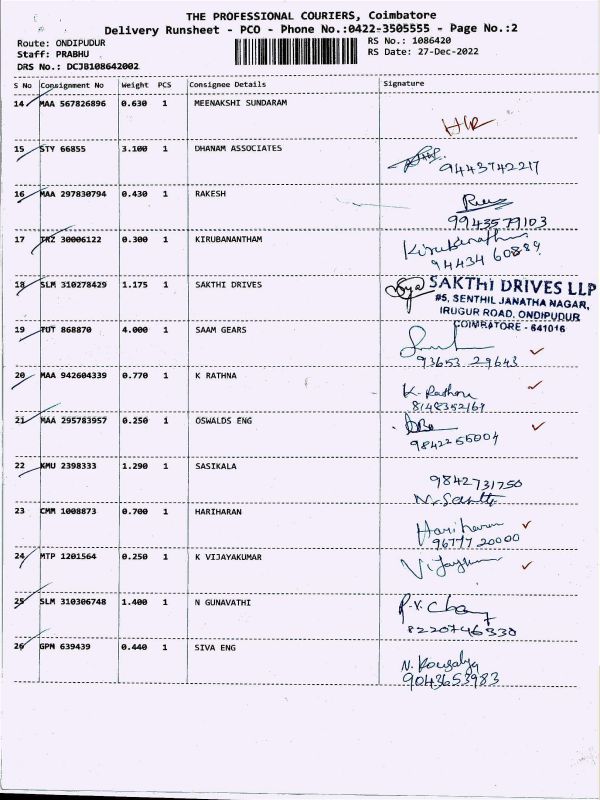 THE PROFESSIONAL COURIERS, Coimbatore
Delivery Runsheet - PCO - Phone No.:0422-3505555 - Page No.:2
Route: ONDIPUDUR RS No.: 1086420
Staff: PRABHU RS Date: 27-Dec-2022
DRS No.: DCJB108642002
S No Consignment No Weight PCS Consignee Details Signature
14 MAA 567826896 0.630 1 MEENAKSHI SUNDARAM
H/R
15 STY 66855 3.100 1 DHANAM ASSOCIATES
9443742217
16 MAA 297830794 0.430 1 RAKESH
9943579103
17 TRZ 30006122 0.300 1 KIRUBANANTHAM Kirubanathan
94434 60889
18 SLM 310278429 1.175 1 SAKTHI DRIVES SAKTHI DRIVES LLP
#5, SENTHIL JANATHA NAGAR,
IRUGUR ROAD, ONDIPUDUR
COIMBATORE - 641016
19 TUT 868870 4.000 1 SAAM GEARS
93653 29643
20 MAA 942604339 0.770 1 K RATHNA
K. Rathna
8148352167
21 MAA 295783957 0.250 1 OSWALDS ENG
9842255004
22 KMU 2398333 1.290 1 SASIKALA
9842731750
23 CMM 1008873 0.700 1 HARIHARAN
Hariharan
96777 20000
24 MTP 1201564 0.250 1 K VIJAYAKUMAR
Vijaykumar
25 SLM 310306748 1.400 1 N GUNAVATHI
8220746330
26 GPN 639439 0.440 1 SIVA ENG
N. Kousalya
9043653983